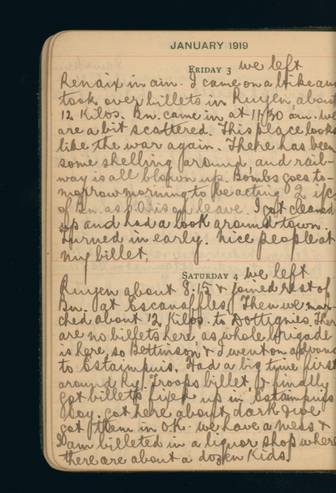 JANUARY 1919
FRIDAY 3 we left
Renaix in am. I came on a bike and
took over billets in Ruyen, about
12 Kilos. Bn. came in at 11/30 am. We
are a bit scattered. This place looks
like the war again. There has been
some shelling around, and rail-
way is all blown up. Bombs goes to-
morrow morning to be acting 2 i/c
of Bn. as is on leave. I got cleaned
up and had a look around town.
Turned in early. Nice people at
my billet.
SATURDAY 4 we left
Ruyen about 8.15 & joined rest of
Bn. at Escanaffles. Then we mar-
ched about 12 Kilos. to Dottignies. There
are no billets here as whole Brigade
is here, so Bettinson & I went on advance
to Estaimpuis. Had a big time first
around Hy. Troops billet, & finally
got billets fixed up in Estaimpuis
Boy. got here about dark & we
got them in O.K. We have a mess &
I am billeted in a liquor shop where
there are about a dozen Kids.